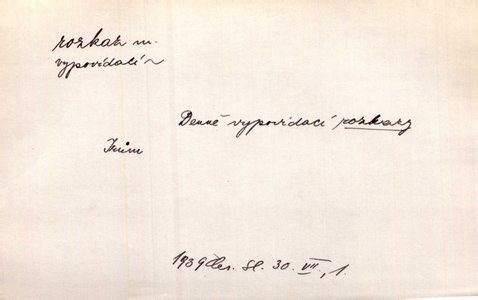 rozkaz m.
vypovídací ~
Denně vypovídací rozkazy
1939 Čes. sl. 30. VII, 1.